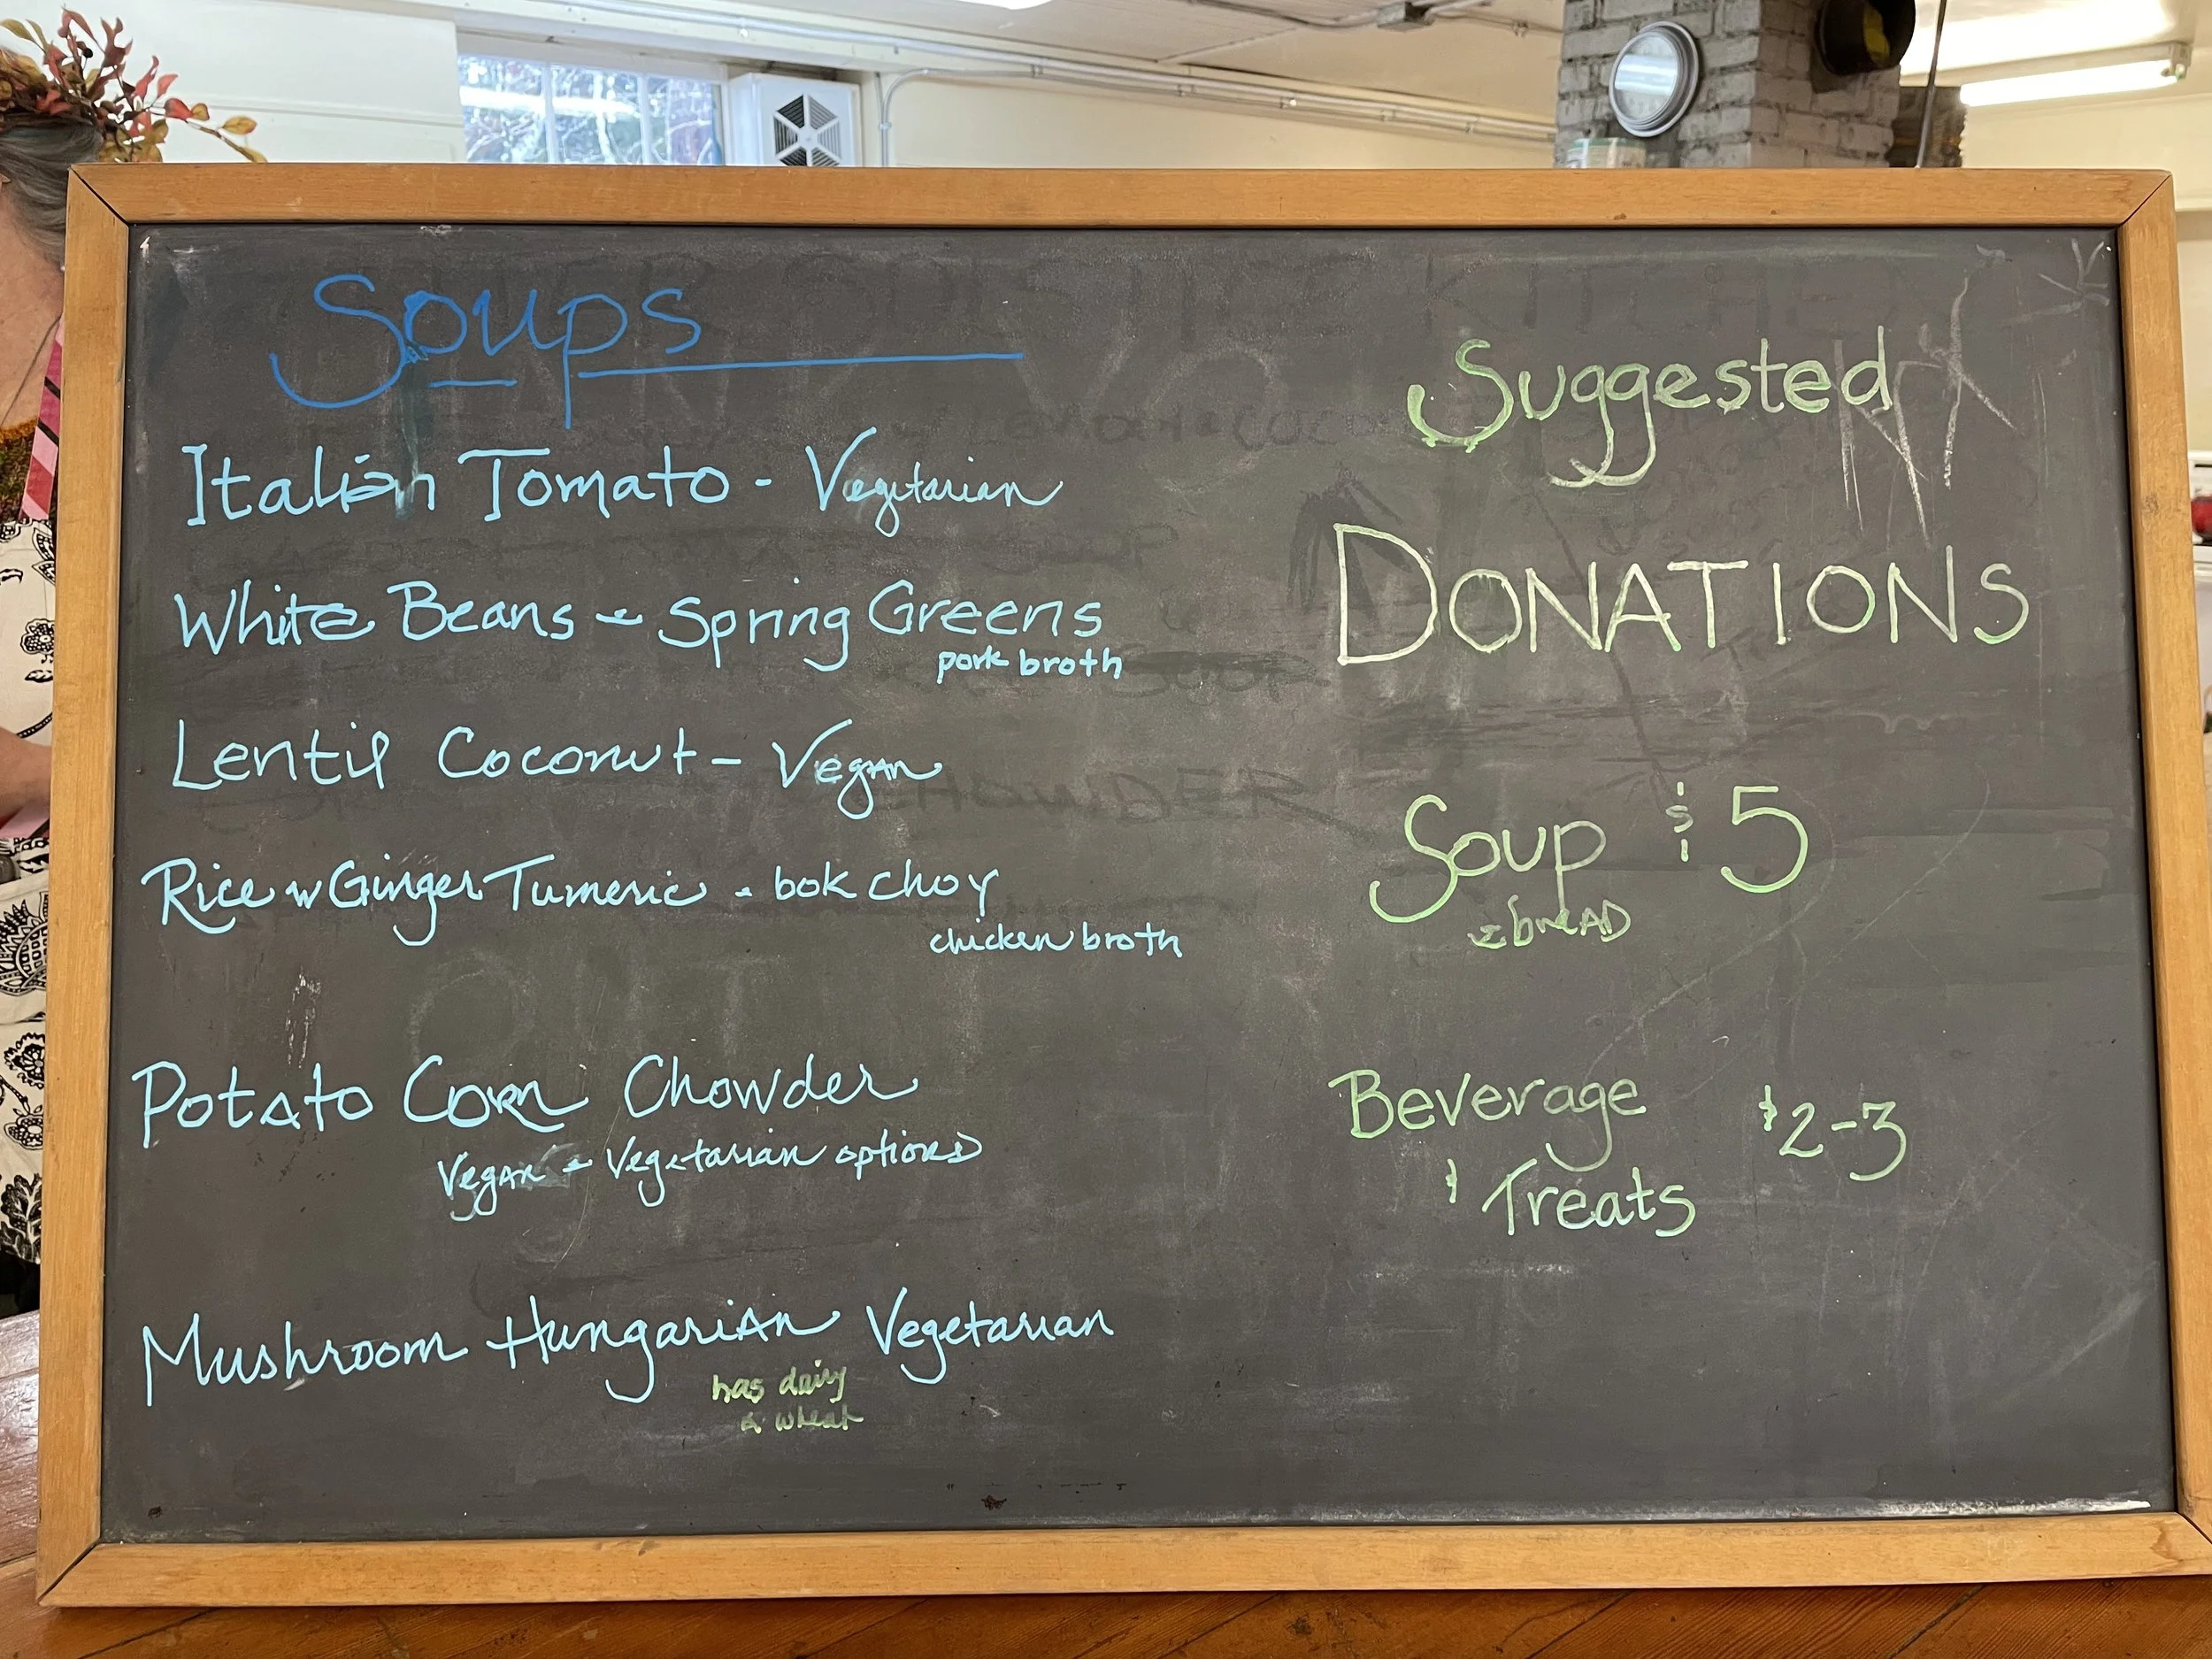 Soups
Italian Tomato - Vegetarian
White Beans & Spring Greens
pork broth
Lentil Coconut - Vegan
Rice w Ginger Tumeric - bok choy
chicken broth
Potato Corn Chowder
Vegan & Vegetarian options
Mushroom Hungarian Vegetarian
has dairy
& wheat
Suggested
DONATIONS
Soup $5
& breAD
Beverage $2-3
& Treats